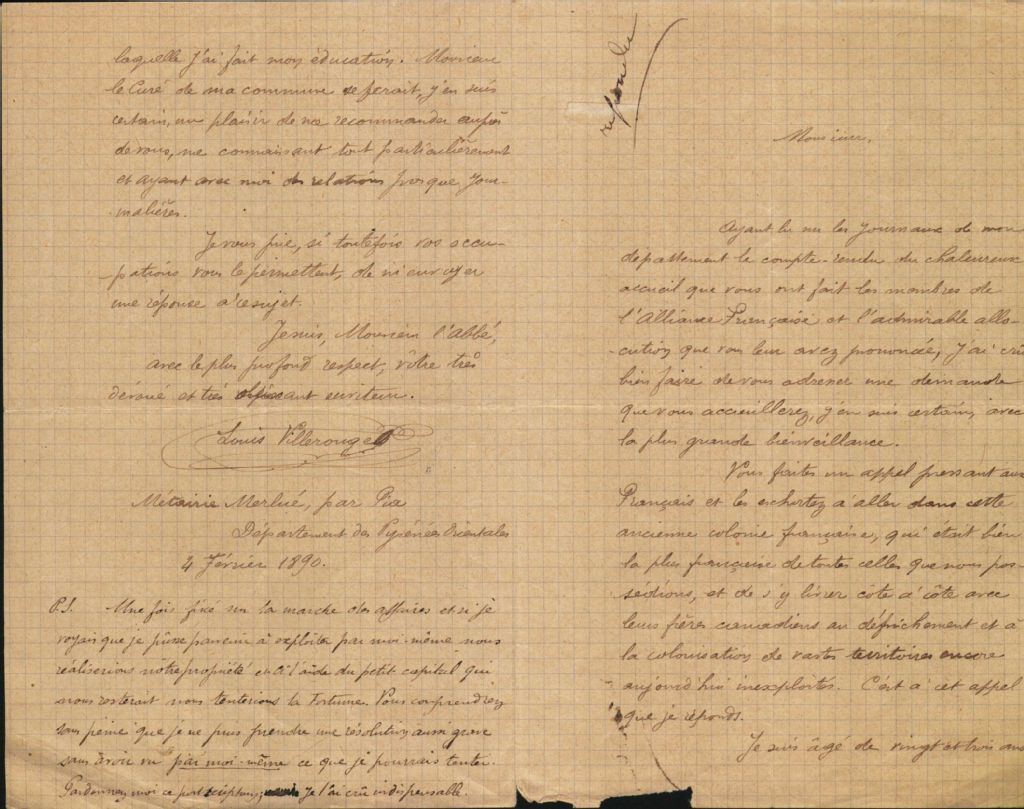 laquelle j'ai fait mon éducation. Monsieur
le Curé de ma commune se ferait, j'en suis
certain, un plaisir de me recommander auprès
de vous, me connaissant tout particulièrement
et ayant avec moi des relations presque jour-
nalières.
Je vous prie, si toutefois vos occu-
pations vous le permettent, de m'envoyer
une réponse à ce sujet.
Je suis, Monsieur l'abbé,
avec le plus profond respect, vôtre très
dévoué et très obéissant serviteur.
Louis Villerouge
Métairie Merlué, par Pia
Département des Pyrénées Orientales
4 Février 1890.
P.S. Une fois fixé sur la marche des affaires et si je
voyais que je pûsse parvenir à exploiter par moi-même nous
réaliserions nôtre propriété et à l'aide du petit capital qui
nous resterait nous tenterions la Fortune. Vous comprendrez
sans peine que je ne puis prendre une résolution aussi grave
sans avoir vu par moi-même ce que je pourrais tenter.
Pardonnez moi ce post scriptum, je l'ai crû indispensable.
repondre
Monsieur,
Ayant lu sur les journaux de mon
département le compte-rendu du chaleureux
accueil que vous ont fait les membres de
l'Alliance Française et l'admirable allo-
cution que vous leur avez prononcée, j'ai crû
bien faire de vous adresser une demande
que vous accueillerez, j'en suis certain, avec
la plus grande bienveillance.
Vous faites un appel pressant aux
Français et les exhortez à aller dans cette
ancienne colonie française, qui était bien
la plus française de toutes celles que nous pos-
sédions, et de s'y livrer côte à côte avec
leurs frères canadiens au défrichement et à
la colonisation de vastes territoires encore
aujourd'hui inexploités. C'est à cet appel
que je réponds.
Je suis âgé de vingt et trois ans